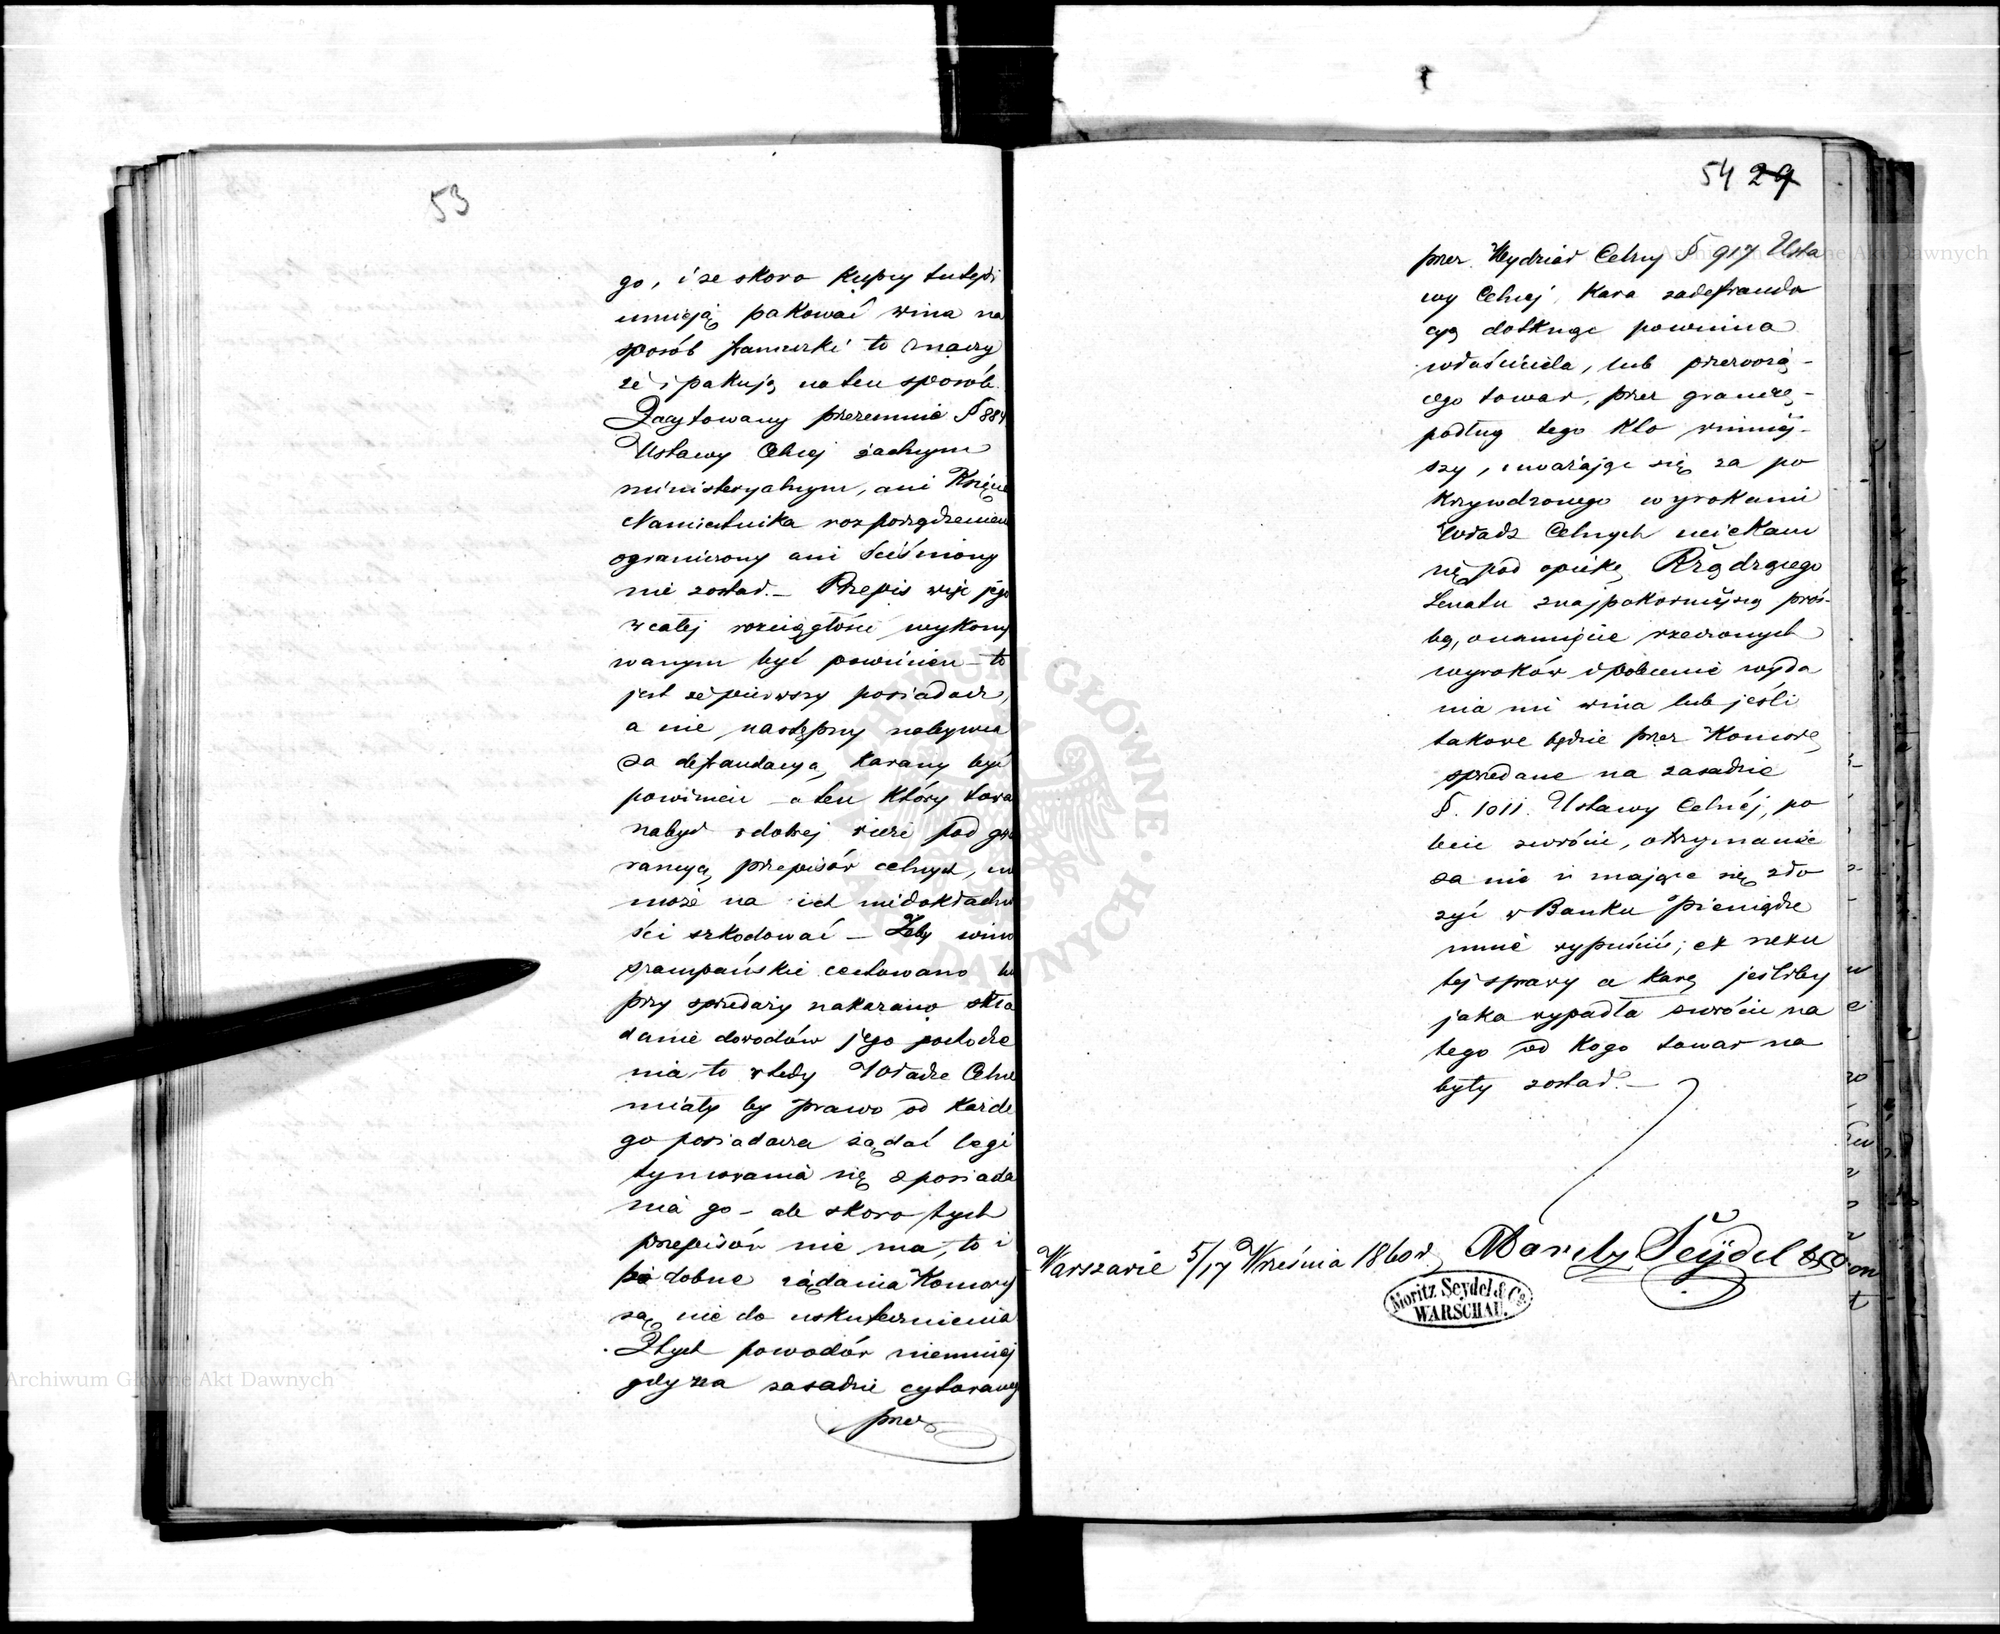 53
go, i ze skoro Kupcy tutejsi
umieją pakować wina na
sposób francuzki to znaczy
że i pakują na ten sposób.
Zacytowany przezemnie § 884
Ustawy Celnej żadnym
ministeryalnym, ani Księcia
Namiestnika rozporządzeniem
ograniczony ani ścieśniony
nie został. – Przepis więc jego
w całej rozciągłości wykony
wanym być powinien – to
jest że pierwszy posiadacz,
a nie następny nabywca
za defraudacyą, karany być
powinien – a ten który towa
nabył w dobrej wierze pod gwa
rancyą przepisów celnych, nie
może na ich niedokładno
ści szkodować – Żeby wino
szampańskie cechowano lub
przy sprzedaży nakazano skła
danie dowodów jego pochodze
nia, to wtedy Władze Celne
miały by prawo od każde
go posiadacza żądać legi
tymowania się z posiada
nia go – ale skoro tych
przepisów nie ma, to i
podobne żądania Komory
są nie do uskutecznienia
Z tych powodów niemniej
gdy na zasadzie cytowany
przez
54 29
przez Wydział Celny § 917 Usta
wy Celnej, Kara za defrauda
cyą dotknąć powinna
właściciela, lub przewożą-
cego towar, przez granicę, –
podług tego kto winniej-
szy, uważając się za po
krzywdzonego wyrokami
Władz Celnych uciekam
się pod opiekę Rządzącego
Senatu z najpokorniejszą proś-
bą, o usunięcie rzeczonych
wyroków i polecenie wyda
nia mi wina lub jeśli
takowe będzie przez Komorę
sprzedane na zasadzie
§. 1011. Ustawy Celnej, po
lecić zwrócić, otrzymanie
za nie i mające się zło
żyć w Banku Pieniądze
mnie wypuścić; ex nexu
tej sprawy a karę jeśliby
jaka wypadła zwrócić na
tego od kogo towar na
byty został. –
Warszawie 5/17 Września 1860 r. Moritz Seydel & Co
Moritz Seydel & Co.
WARSCHAU.
Archiwum Główne Akt Dawnych